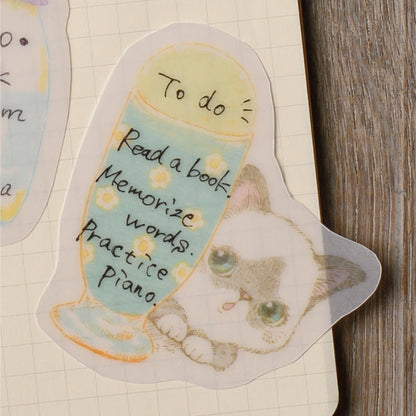 o.
k
m
a
To do
Read a book.
Memorize
words.
Practice
Piano.